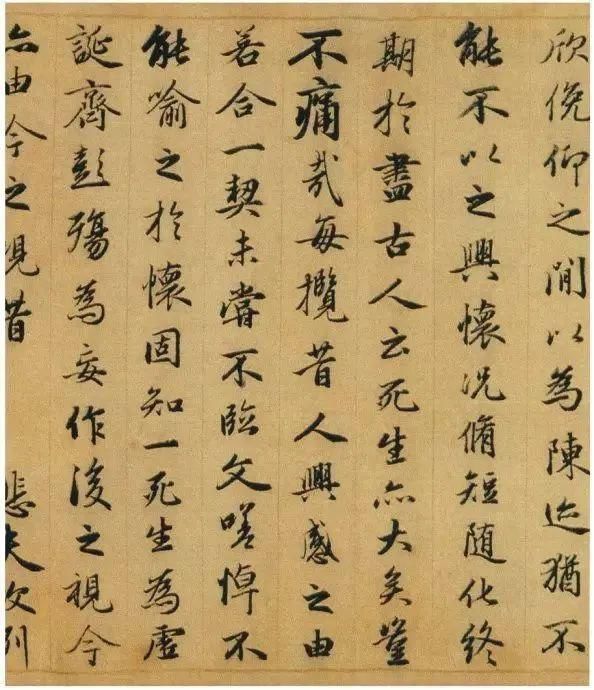 欣俛仰之閒以為陳迹猶不
能不以之興懷況脩短隨化終
期於盡古人云死生亦大矣豈
不痛哉每攬昔人興感之由
若合一契未嘗不臨文嗟悼不
能喻之於懷固知一死生為虛
誕齊彭殤為妄作後之視今
亦由今之視昔 悲夫故列